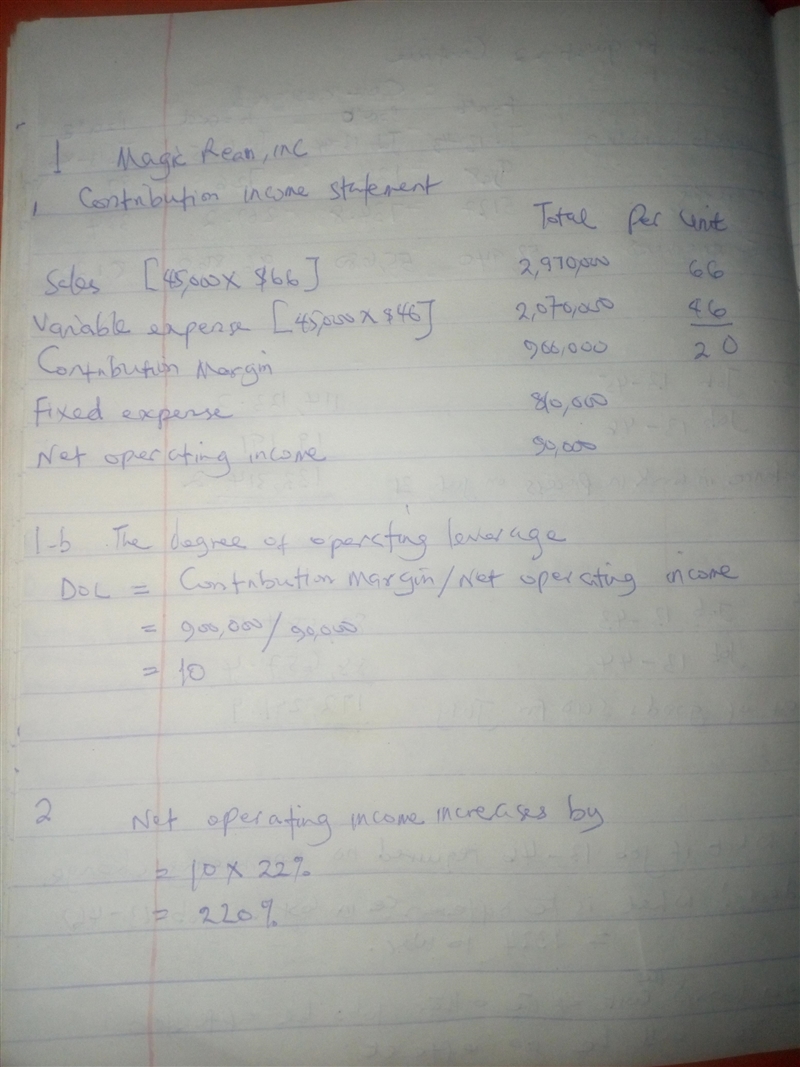 1 Magic Ream, inc
Contribution income statement
Total Per Unit
Sales [45,000 X $66] 2,970,000 66
Variable expense [45,000 X $46] 2,070,000 46
Contribution Margin 900,000 20
Fixed expense 810,000
Net operating income 90,000
1-b The degree of operating leverage
DOL = Contribution Margin/Net operating income
= 900,000/90,000
= 10
2 Net operating income increases by
= 10 X 22%
= 220%